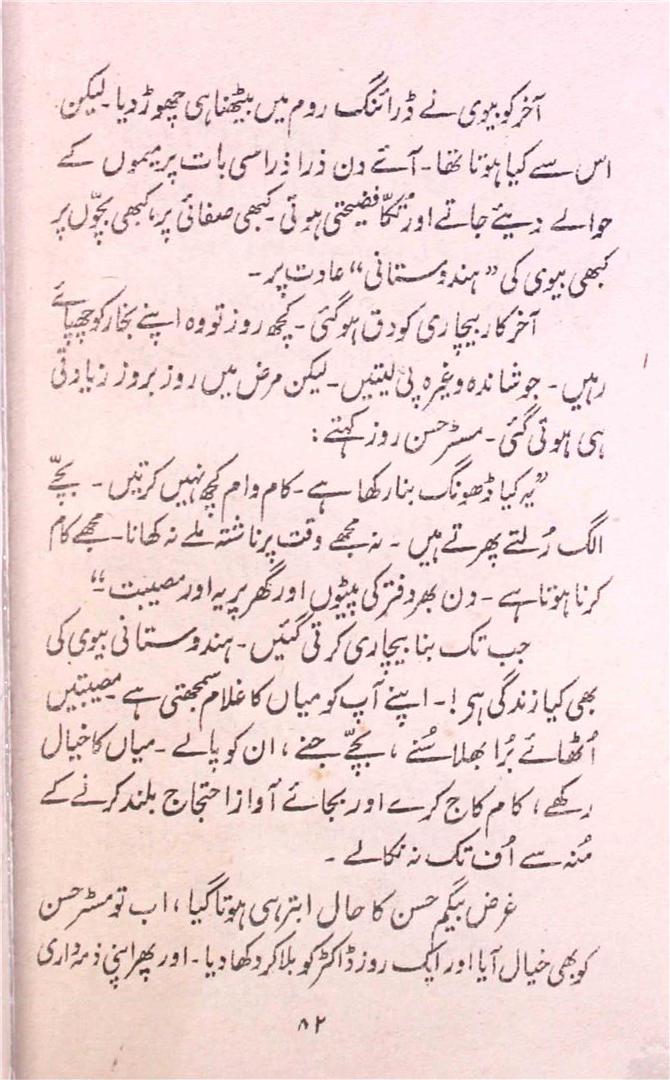 آخر کو بیوی نے ڈرائنگ روم میں بیٹھنا ہی چھوڑ دیا۔ لیکن
اس سے کیا ہوتا تھا۔ آئے دن ذرا ذرا سی بات پر میموں کے
حوالے دیئے جاتے اور تُکّا فضیحتی ہوتی۔ کبھی صفائی پر، کبھی بچّوں پر
کبھی بیوی کی ”ہندوستانی“ عادت پر۔
آخر کار بیچاری کو دق ہو گئی۔ کچھ روز تو وہ اپنے بخار کو چھپائے
رہیں۔ جوشاندہ وغیرہ پی لیتیں۔ لیکن مرض میں روز بروز زیادتی
ہی ہوتی گئی۔ مسٹر حسن روز کہتے:
”یہ کیا ڈھونگ بنا رکھا ہے۔ کام وام کچھ نہیں کرتیں۔ بچّے
الگ رُلتے پھرتے ہیں۔ نہ مجھے وقت پر ناشتہ ملے نہ کھانا۔ مجھے کام
کرنا ہوتا ہے۔ دن بھر دفتر کی پیٹوں اور گھر پر یہ اور مصیبت۔“
جب تک بنا بیچاری کرتی گئیں۔ ہندوستانی بیوی کی
بھی کیا زندگی ہی!۔ اپنے آپ کو میاں کا غلام سمجھتی ہے۔ مصیبتیں
اُٹھائے بُرا بھلا سُنے، بچّے جنے، ان کو پالے۔ میاں کا خیال
رکھے، کام کاج کرے اور بجائے آواز احتجاج بلند کرنے کے
مُنہ سے اُف تک نہ نکالے۔
غرض بیگم حسن کا حال ابتر ہی ہوتا گیا، اب تو مسٹر حسن
کو بھی خیال آیا اور ایک روز ڈاکٹر کو بلا کر دکھا دیا۔ اور پھر اپنی ذمہ داری
۸۲